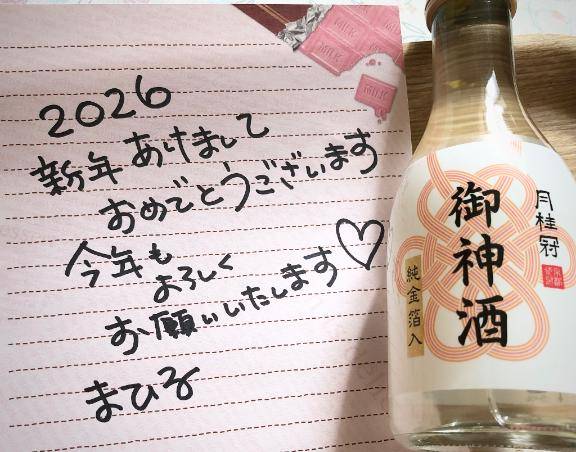 2026
新年あけまして
おめでとうございます
今年も
よろしく
お願いいたします♡
まひる
MILK
MILK
月桂冠
御神酒
純金箔入